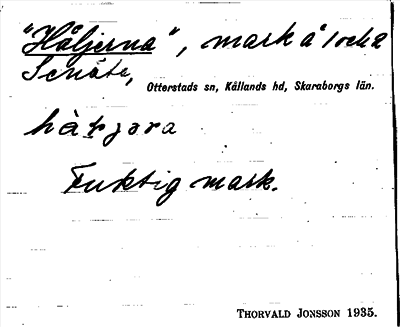 "Håljerna", mark å 1 och 2
Senäte,
Otterstads sn, Kållands hd, Skaraborgs län.
hàljəra
Fuktig mark.
THORVALD JONSSON 1935.